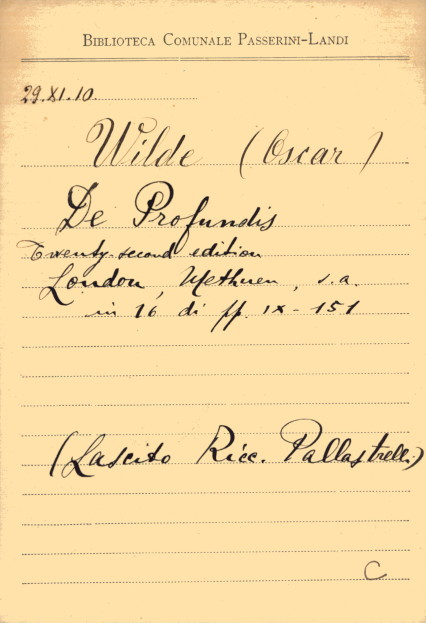 BIBLIOTECA COMUNALE PASSERINI-LANDI
29.XI.10.
Wilde (Oscar)
De Profundis
Twenty-second edition
London, Methuen, s.a.
in 16, di pp. IX-151
(Lascito Ricc. Pallastrelli)
C